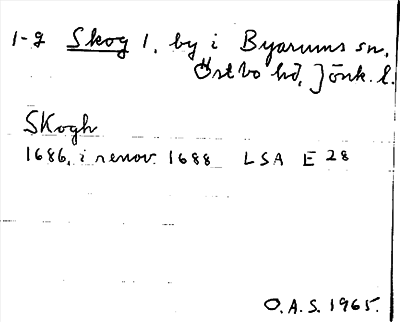 1-2 Skog 1, by i Byarums sn,
Östbo hd, Jönk. l.
Skogh
1686, i renov. 1688 LSA E 28
O.A.S. 1965.